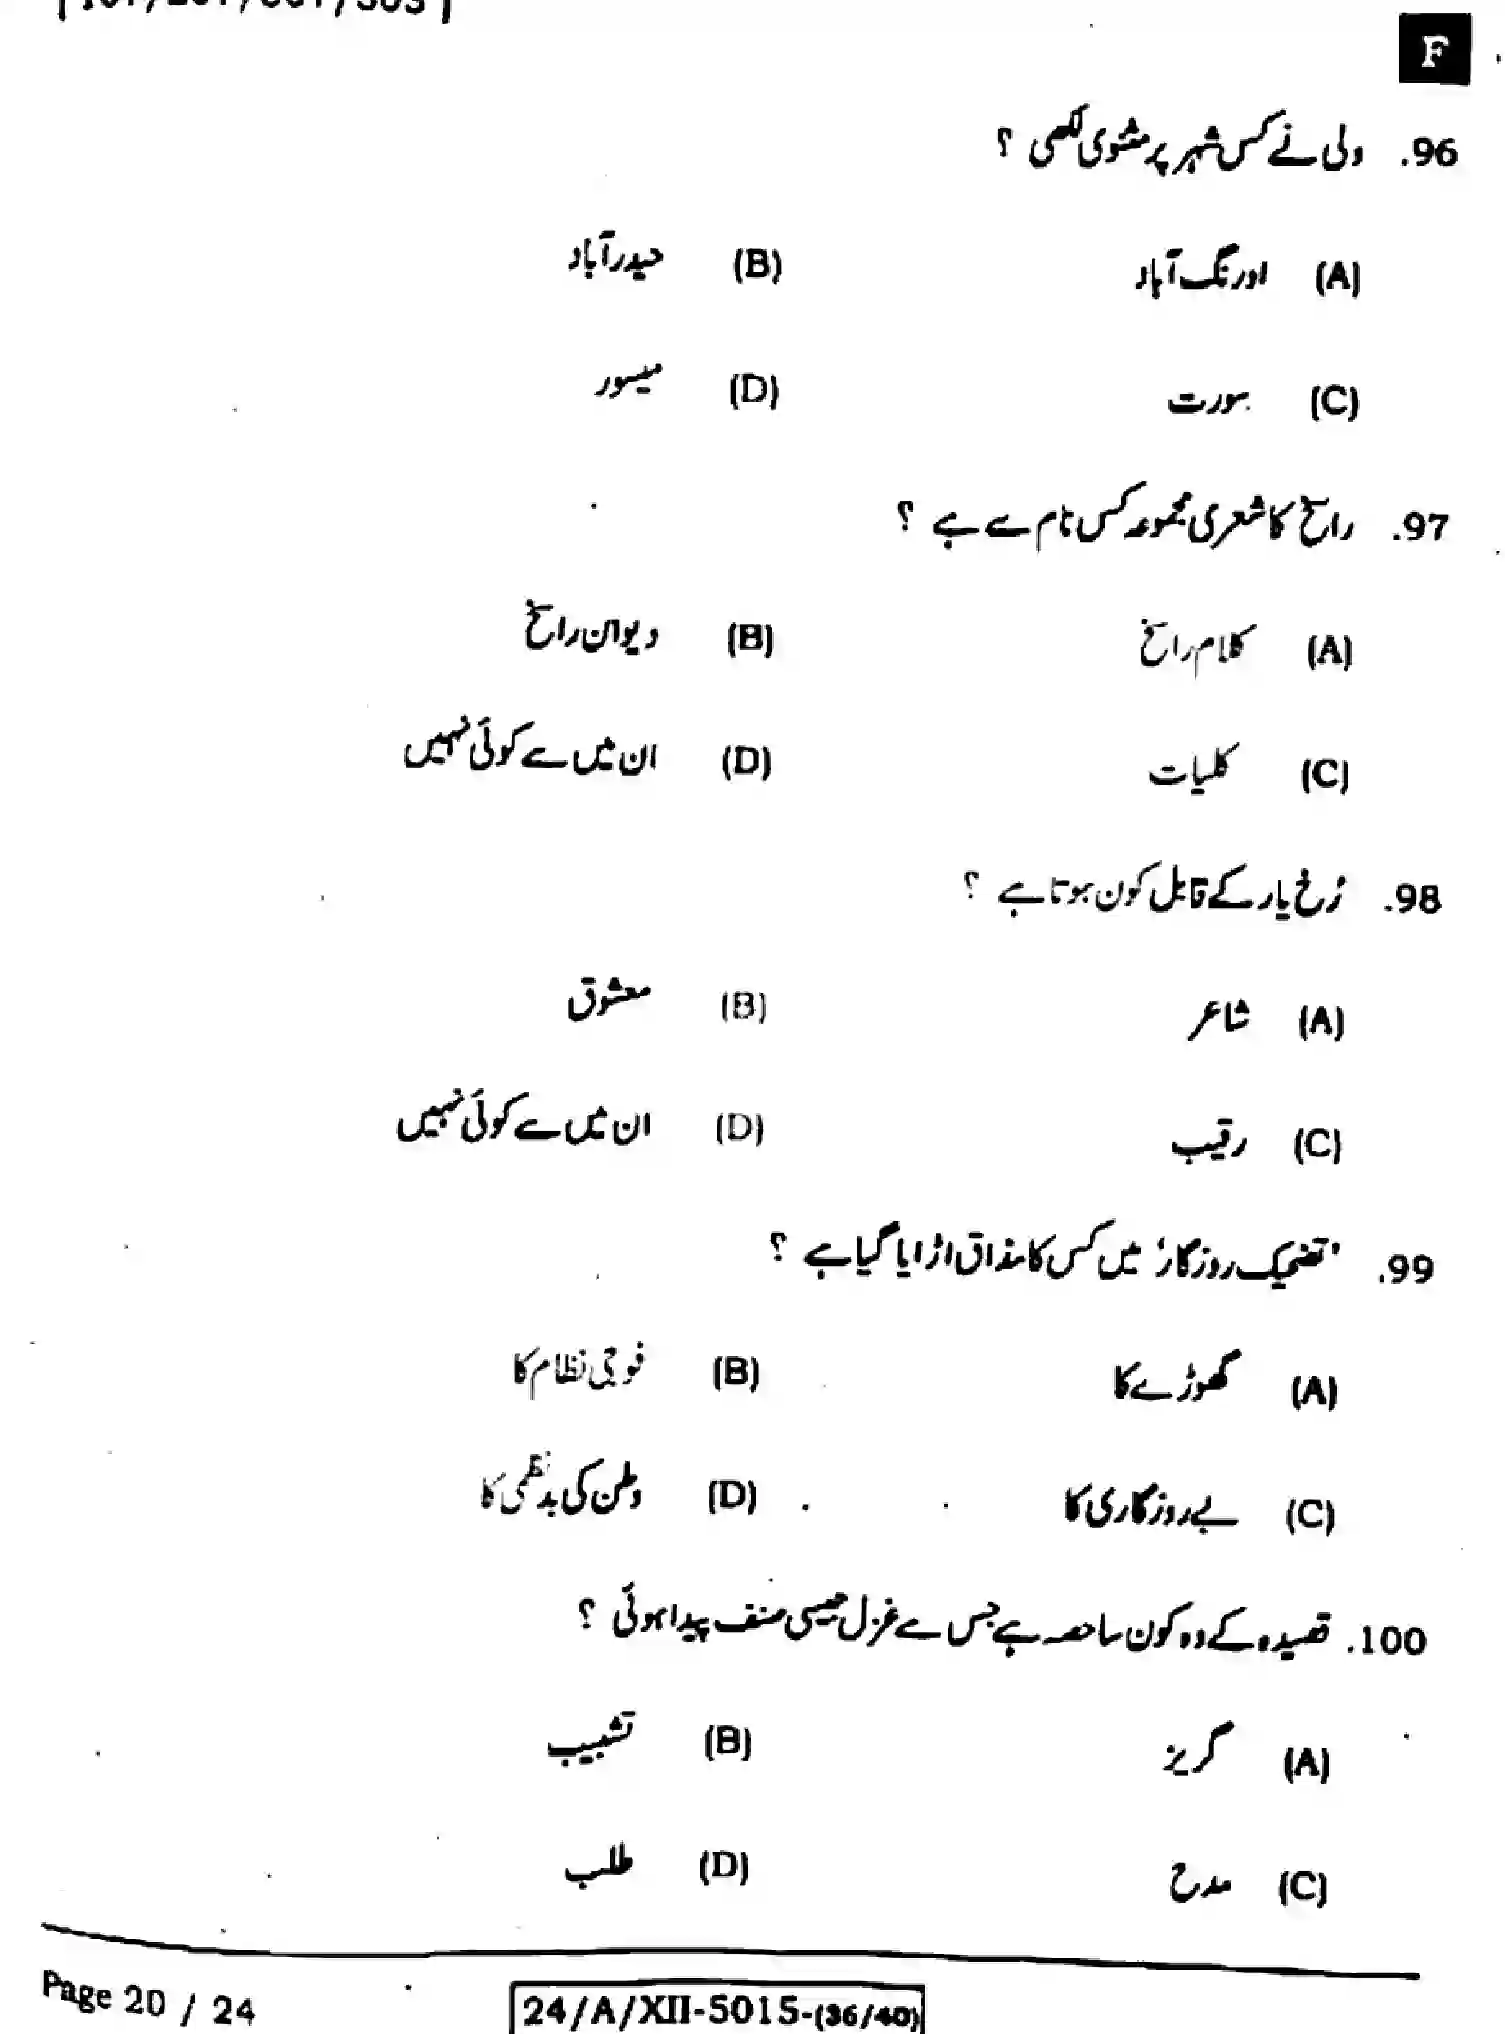 F
96. ولی نے کس شہر پر مثنوی لکھی ؟
(A) اورنگ آباد (B) حیدرآباد
(C) سورت (D) میسور
97. راسخ کا شعری مجموعہ کس نام سے ہے ؟
(A) کلام راسخ (B) دیوان راسخ
(C) کلیات (D) ان میں سے کوئی نہیں
98. رُخ یار کے قابل کون ہوتا ہے ؟
(A) شاعر (B) معشوق
(C) رقیب (D) ان میں سے کوئی نہیں
99. 'تضحیک روزگار' میں کس کا مذاق اڑایا گیا ہے ؟
(A) گھوڑے کا (B) فوجی نظام کا
(C) بے روزگاری کا (D) وطن کی بدنظمی کا
100. قصیدہ کے وہ کون سا حصہ ہے جس سے غزل جیسی صنف پیدا ہوئی ؟
(A) گریز (B) تشبیب
(C) مدح (D) طلب
Page 20 / 24
24/A/XII-5015-(36/40)